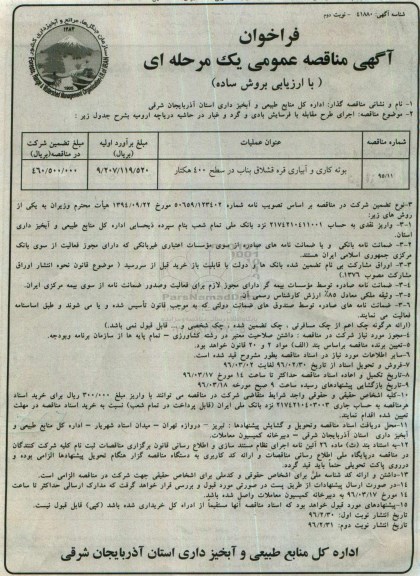 شناسه آگهی: ۴۱۸۸۰ - نوبت دوم
فراخوان
آگهی مناقصه عمومی یک مرحله ای
( با ارزیابی بروش ساده)
۱- نام و نشانی مناقصه گذار: اداره کل منابع طبیعی و آبخیز داری استان آذربایجان شرقی
۲- موضوع مناقصه: اجرای طرح مقابله با فرسایش بادی و گرد و غبار در حاشیه دریاچه ارومیه بشرح جدول زیر :
شماره مناقصه
عنوان عملیات
مبلغ برآورد اولیه (بریال)
مبلغ تضمین شرکت در مناقصه(بریال)
۹۵/۱۱
بوته کاری و آبیاری قره قشلاق بناب در سطح ۴۰۰ هکتار
۹/۲۰۷/۱۱۹/۵۲۰
۴۶۰/۵۰۰/۰۰۰
۳-نوع تضمین شرکت در مناقصه بر اساس تصویب نامه شماره ۵۰۶۵۹/۱۲۳۴۰۲ مورخ ۱۳۹۴/۰۹/۲۲ هیأت محترم وزیران به یکی از
روش های زیر:
۳-۱- واریز نقدی به حساب ۲۱۷۴۲۱۰۴۱۱۰۰۱ نزد بانک ملی تمام شعب بنام سپرده ذیحسابی اداره کل منابع طبیعی و آبخیز داری
استان.
۳-۲- ضمانت نامه بانکی و یا ضمانت نامه های صادره از سوی مؤسسات اعتباری غیربانکی که دارای مجوز فعالیت از سوی بانک
مرکزی جمهوری اسلامی ایران هستند.
۳-۳- اوراق مشارکت بی نام تضمین شده بانک ها و دولت با قابلیت باز خرید قبل از سررسید ( موضوع قانون نحوه انتشار اوراق
مشارکت مصوب ۱۳۷۶).
۳-۴- ضمانت نامه صادره توسط مؤسسات بیمه گر دارای مجوز لازم برای فعالیت وصدور ضمانت نامه از سوی بیمه مرکزی ایران.
۳-۵- وثیقه ملکی معادل ۸۵٪ ارزش کارشناس رسمی آن
۳-۶- ضمانت نامه های صادره توسط صندوق های ضمانت دولتی که به موجب قانون تأسیس شده و یا می شوند و طبق اساسنامه
فعالیت می نمایند.
(ارائه هرگونه چک اعم از چک مسافرتی ، چک تضمین شده ، چک شخصی و... قابل قبول نمی باشد.)
۴-مجوز مورد نیاز شرکت در مناقصه : داشتن صلاحیت معتبر در رشته کشاورزی – تمام پایه ها از سازمان برنامه وبودجه.
۵-تعیین برنده مناقصه براساس بند (الف) مواد ۲ و ۲۰ قانون خواهد بود.
۶-سایر اطلاعات مورد نیاز در اسناد مناقصه بطور مشروح قید شده است.
۷-فروش و تحویل اسناد از تاریخ ۹۶/۰۲/۳۰ لغایت ۹۶/۰۳/۰۲
۸-تاریخ تکمیل و اعاده اسناد مناقصه حداکثر تا ساعت ۱۴ مورخ ۹۶/۰۳/۱۷
۹-تاریخ بازگشایی پیشنهادهای رسیده ساعت ۹ صبح مورخه ۹۶/۰۳/۱۸
۱۰-کلیه اشخاص حقیقی و حقوقی واجد شرایط متقاضی شرکت در مناقصه می توانند با واریز مبلغ ۳۰۰/۰۰۰ ریال برای خرید اسناد
فرمناقصه به حساب جاری ۲۱۷۴۲۱۰۴۰۳۰۰۳ نزد بانک ملی ایران (قابل پرداخت در تمام شعب) نسبت به خرید اسناد مناقصه در مهلت
تعیین شده اقدام نمایند.
۱۱-محل دریافت اسناد مناقصه وتحویل و گشایش پیشنهادها : تبریز – دروازه تهران – میدان استاد شهریار – اداره کل منابع طبیعی و
آبخیز داری استان آذربایجان شرقی – دبیرخانه کمیسیون معاملات.
۱۲-به استناد بند (ث) ماده ۲۶ آئین نامه اجرای نظام مستند سازی و اطلاع رسانی قانون برگزاری مناقصات ثبت نام کلیه شرکت کنندگان
در مناقصه درپایگاه ملی اطلاع رسانی مناقصات و ارائه کد کاربری به دستگاه مناقصه گزار هنگام تحویل پیشنهادها الزامی بوده و
درروی پاکت تحویلی حتماً باید قید گردد.
۱۳-داشتن و ارائه کد شناسه ملی برای اشخاص حقوقی و کدملی برای اشخاص حقیقی جهت شرکت در مناقصه الزامی است.
۱۴-در صورت ارسال پیشنهادات از طریق پست در صورتی مورد قبول و بررسی قرار خواهد گرفت که مدارک ارسالی حداکثر تا ساعت
۱۴ مورخ ۹۶/۰۳/۱۷ به دبیرخانه کمیسیون معاملات واصل شده باشد.
۱۵-پیشنهادهای مورد قبول خواهد بود که اسناد مناقصه آنها مستقیماً از ادراه کل خریداری شده باشد (کپی) قابل قبول نیست.
تاریخ انتشار نوبت اول: ۹۶/۲/۳۰
تاریخ انتشار نوبت دوم: ۹۶/۲/۳۱
اداره کل منابع طبیعی و آبخیز داری استان آذربایجان شرقی